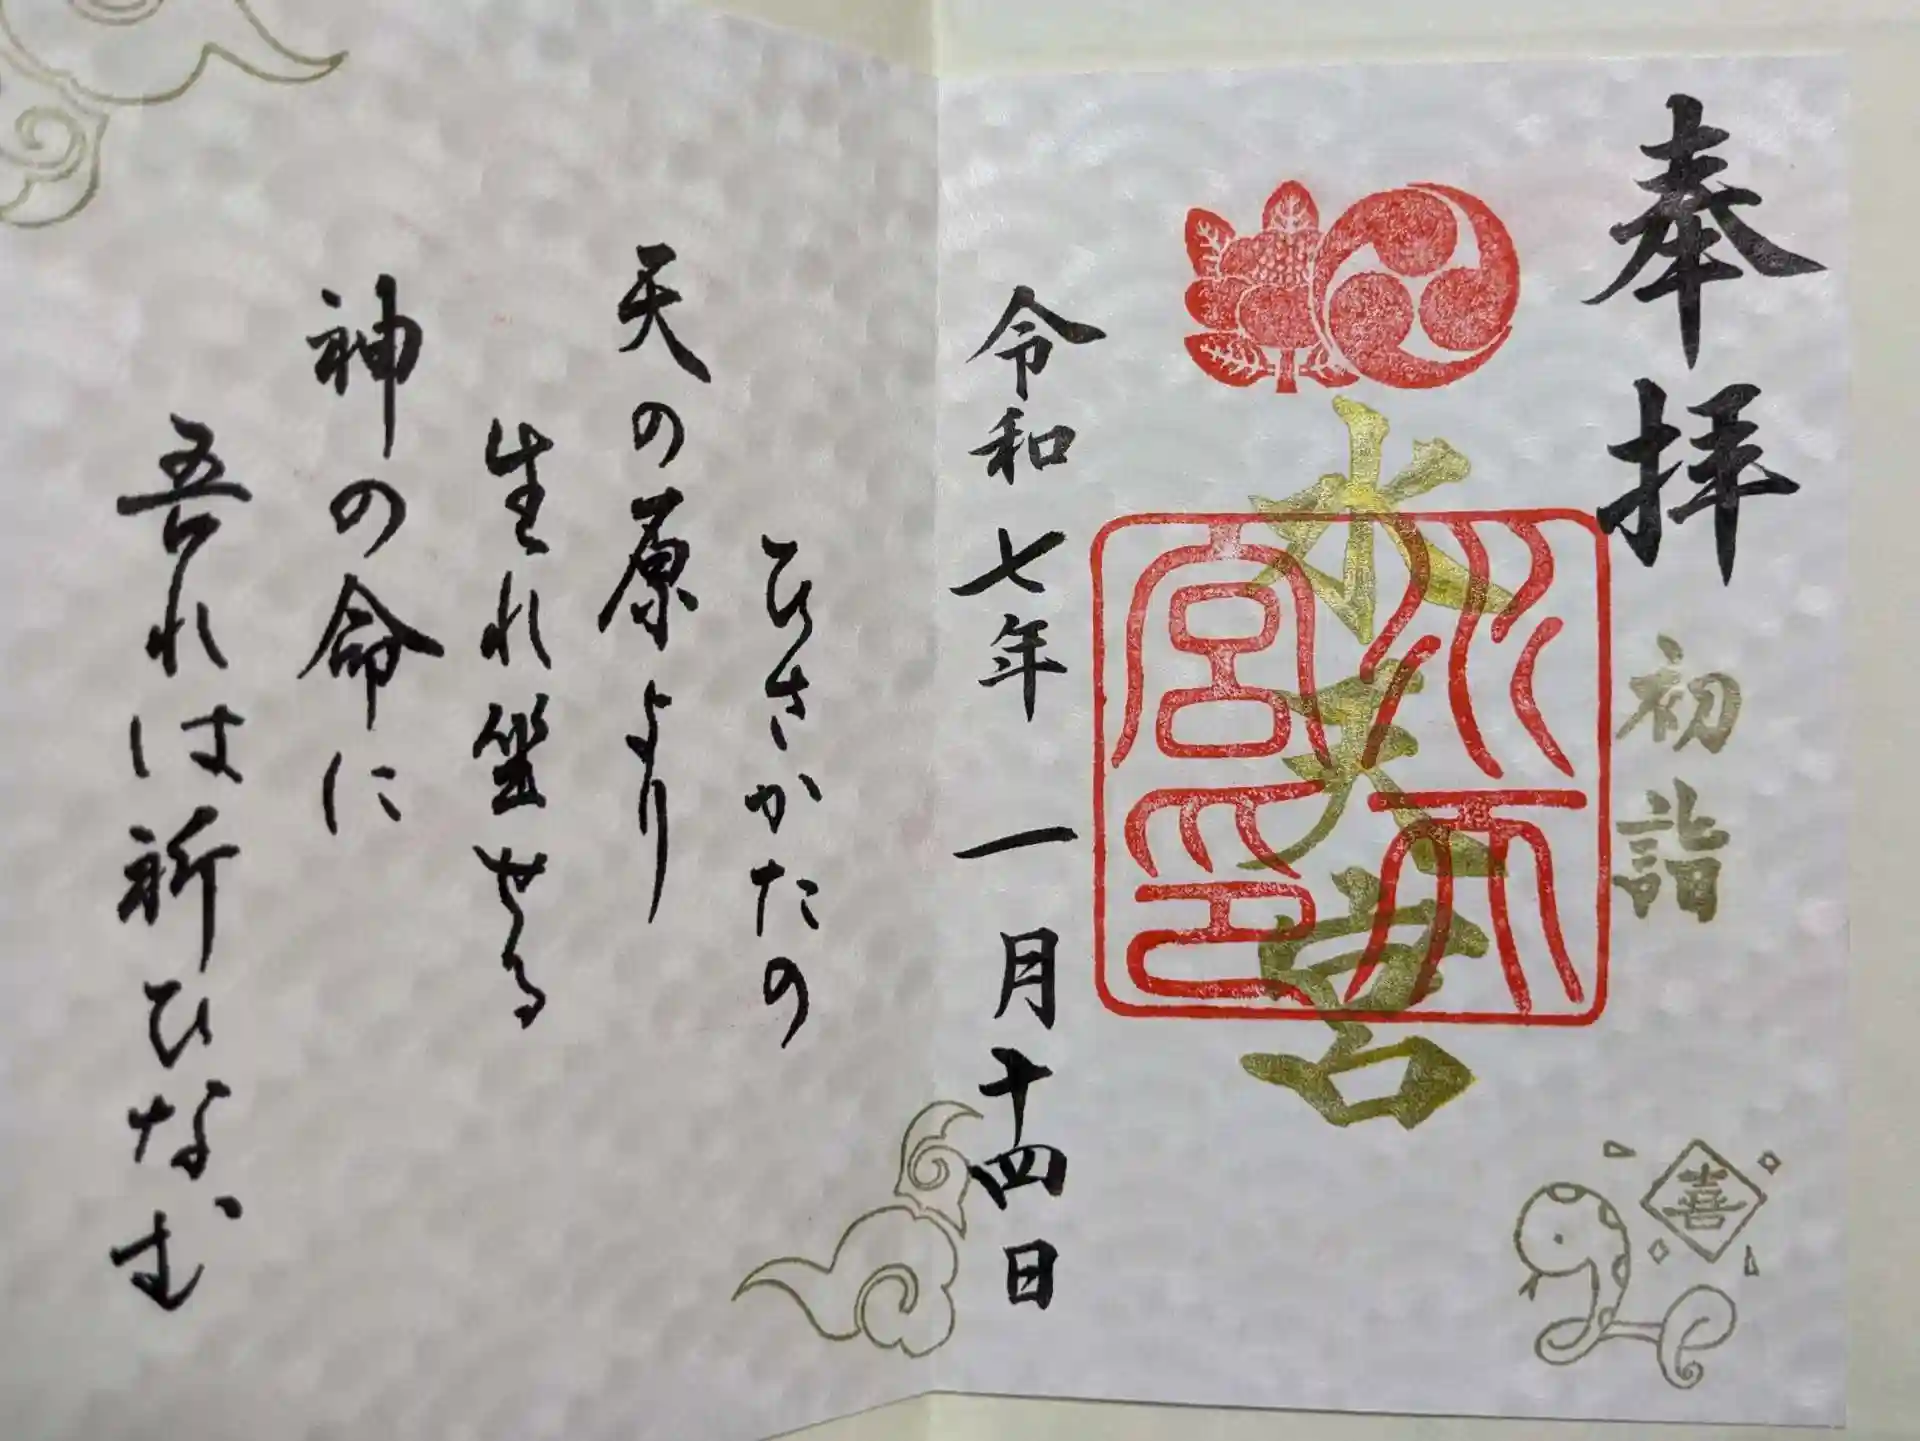 奉拝
初詣
喜
水天宮
水天宮印
令和七年一月十四日
ひさかたの
天の原より
生れ坐せる
神の命に
吾れは祈ひなむ